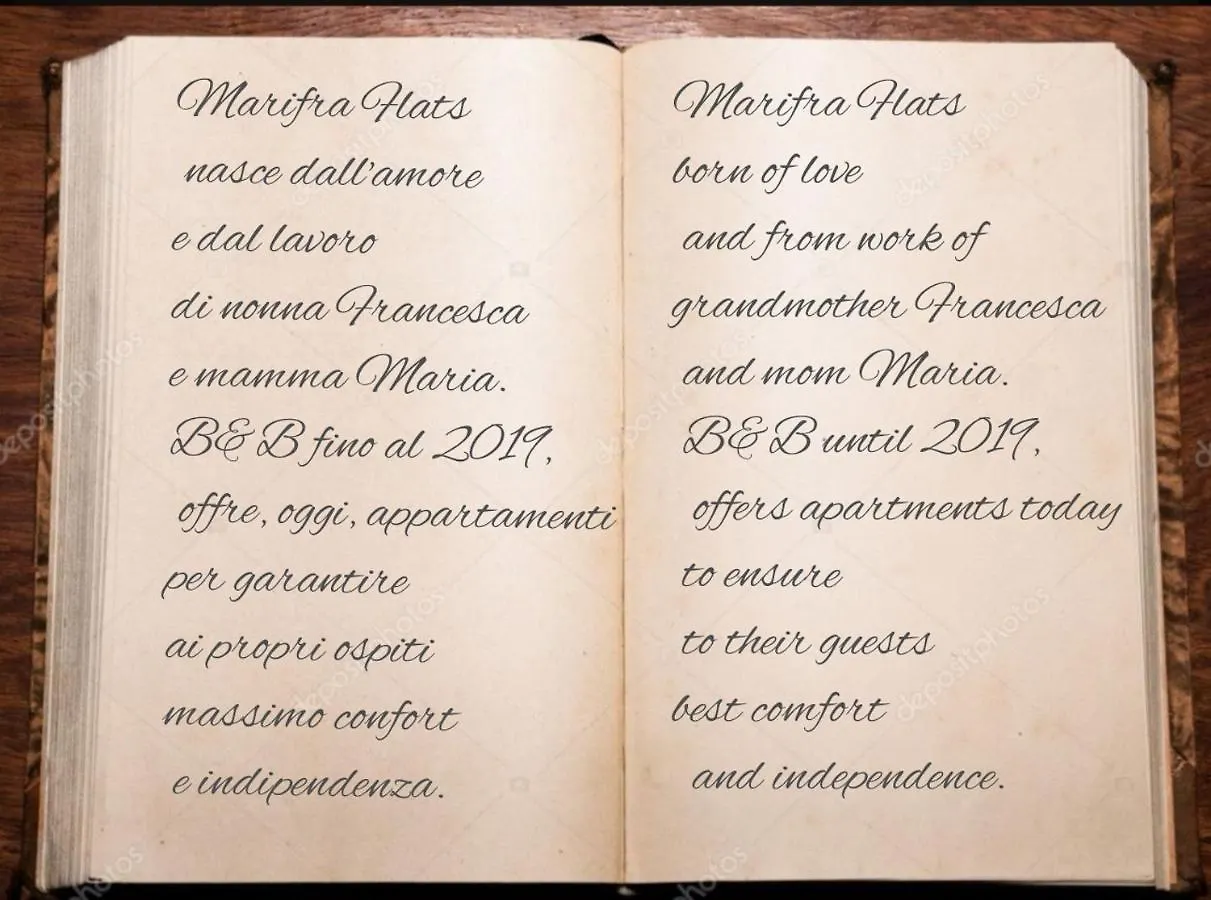 Marifra Flats
nasce dall'amore
e dal lavoro
di nonna Francesca
e mamma Maria.
B&B fino al 2019,
offre, oggi, appartamenti
per garantire
ai propri ospiti
massimo confort
e indipendenza.
Marifra Flats
born of love
and from work of
grandmother Francesca
and mom Maria.
B&B until 2019,
offers apartments today
to ensure
to their guests
best comfort
and independence.
depositphotos
depositphotos
depositphotos
depositphotos
depositphotos
depositphotos
depositphotos
depositphotos
depositphotos
depositphotos